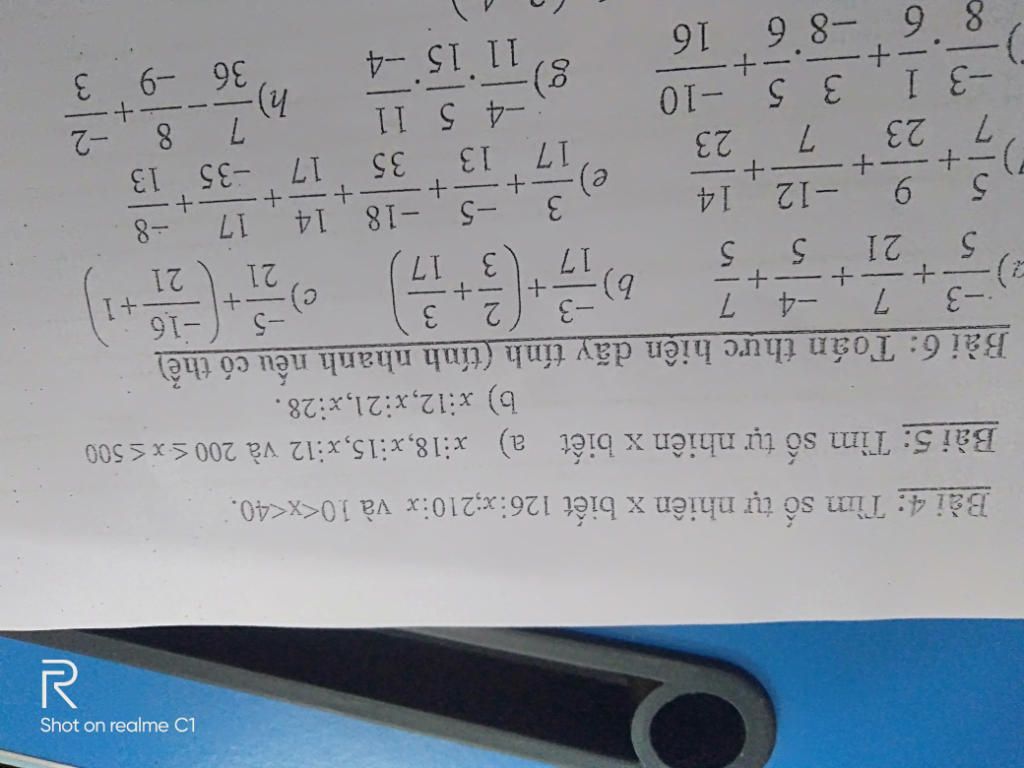 Bài 4: Tìm số tự nhiên x biết 126⋮x;210⋮x và 10<x<40.
Bài 5: Tìm số tự nhiên x biết a) x⋮18,x⋮15,x⋮12 và 200 ≤ x ≤ 500
b) x⋮12,x⋮21,x⋮28.
Bài 6: Toán thực hiện dãy tính (tính nhanh nếu có thể)
a) -3/5 + 7/21 + -4/5 + 7/5 b) -3/17 + (2/3 + 3/17) c) -5/21 + (-16/21 + 1)
) 5/7 + 9/23 + -12/7 + 14/23 e) 3/17 + -5/13 + -18/35 + 14/17 + 17/-35 + -8/13
) -3/8 . 1/6 + 3/-8 . 5/6 + -10/16 g) -4/11 . 5/15 . 11/-4 h) 7/36 - 8/-9 + -2/3
R
Shot on realme C1